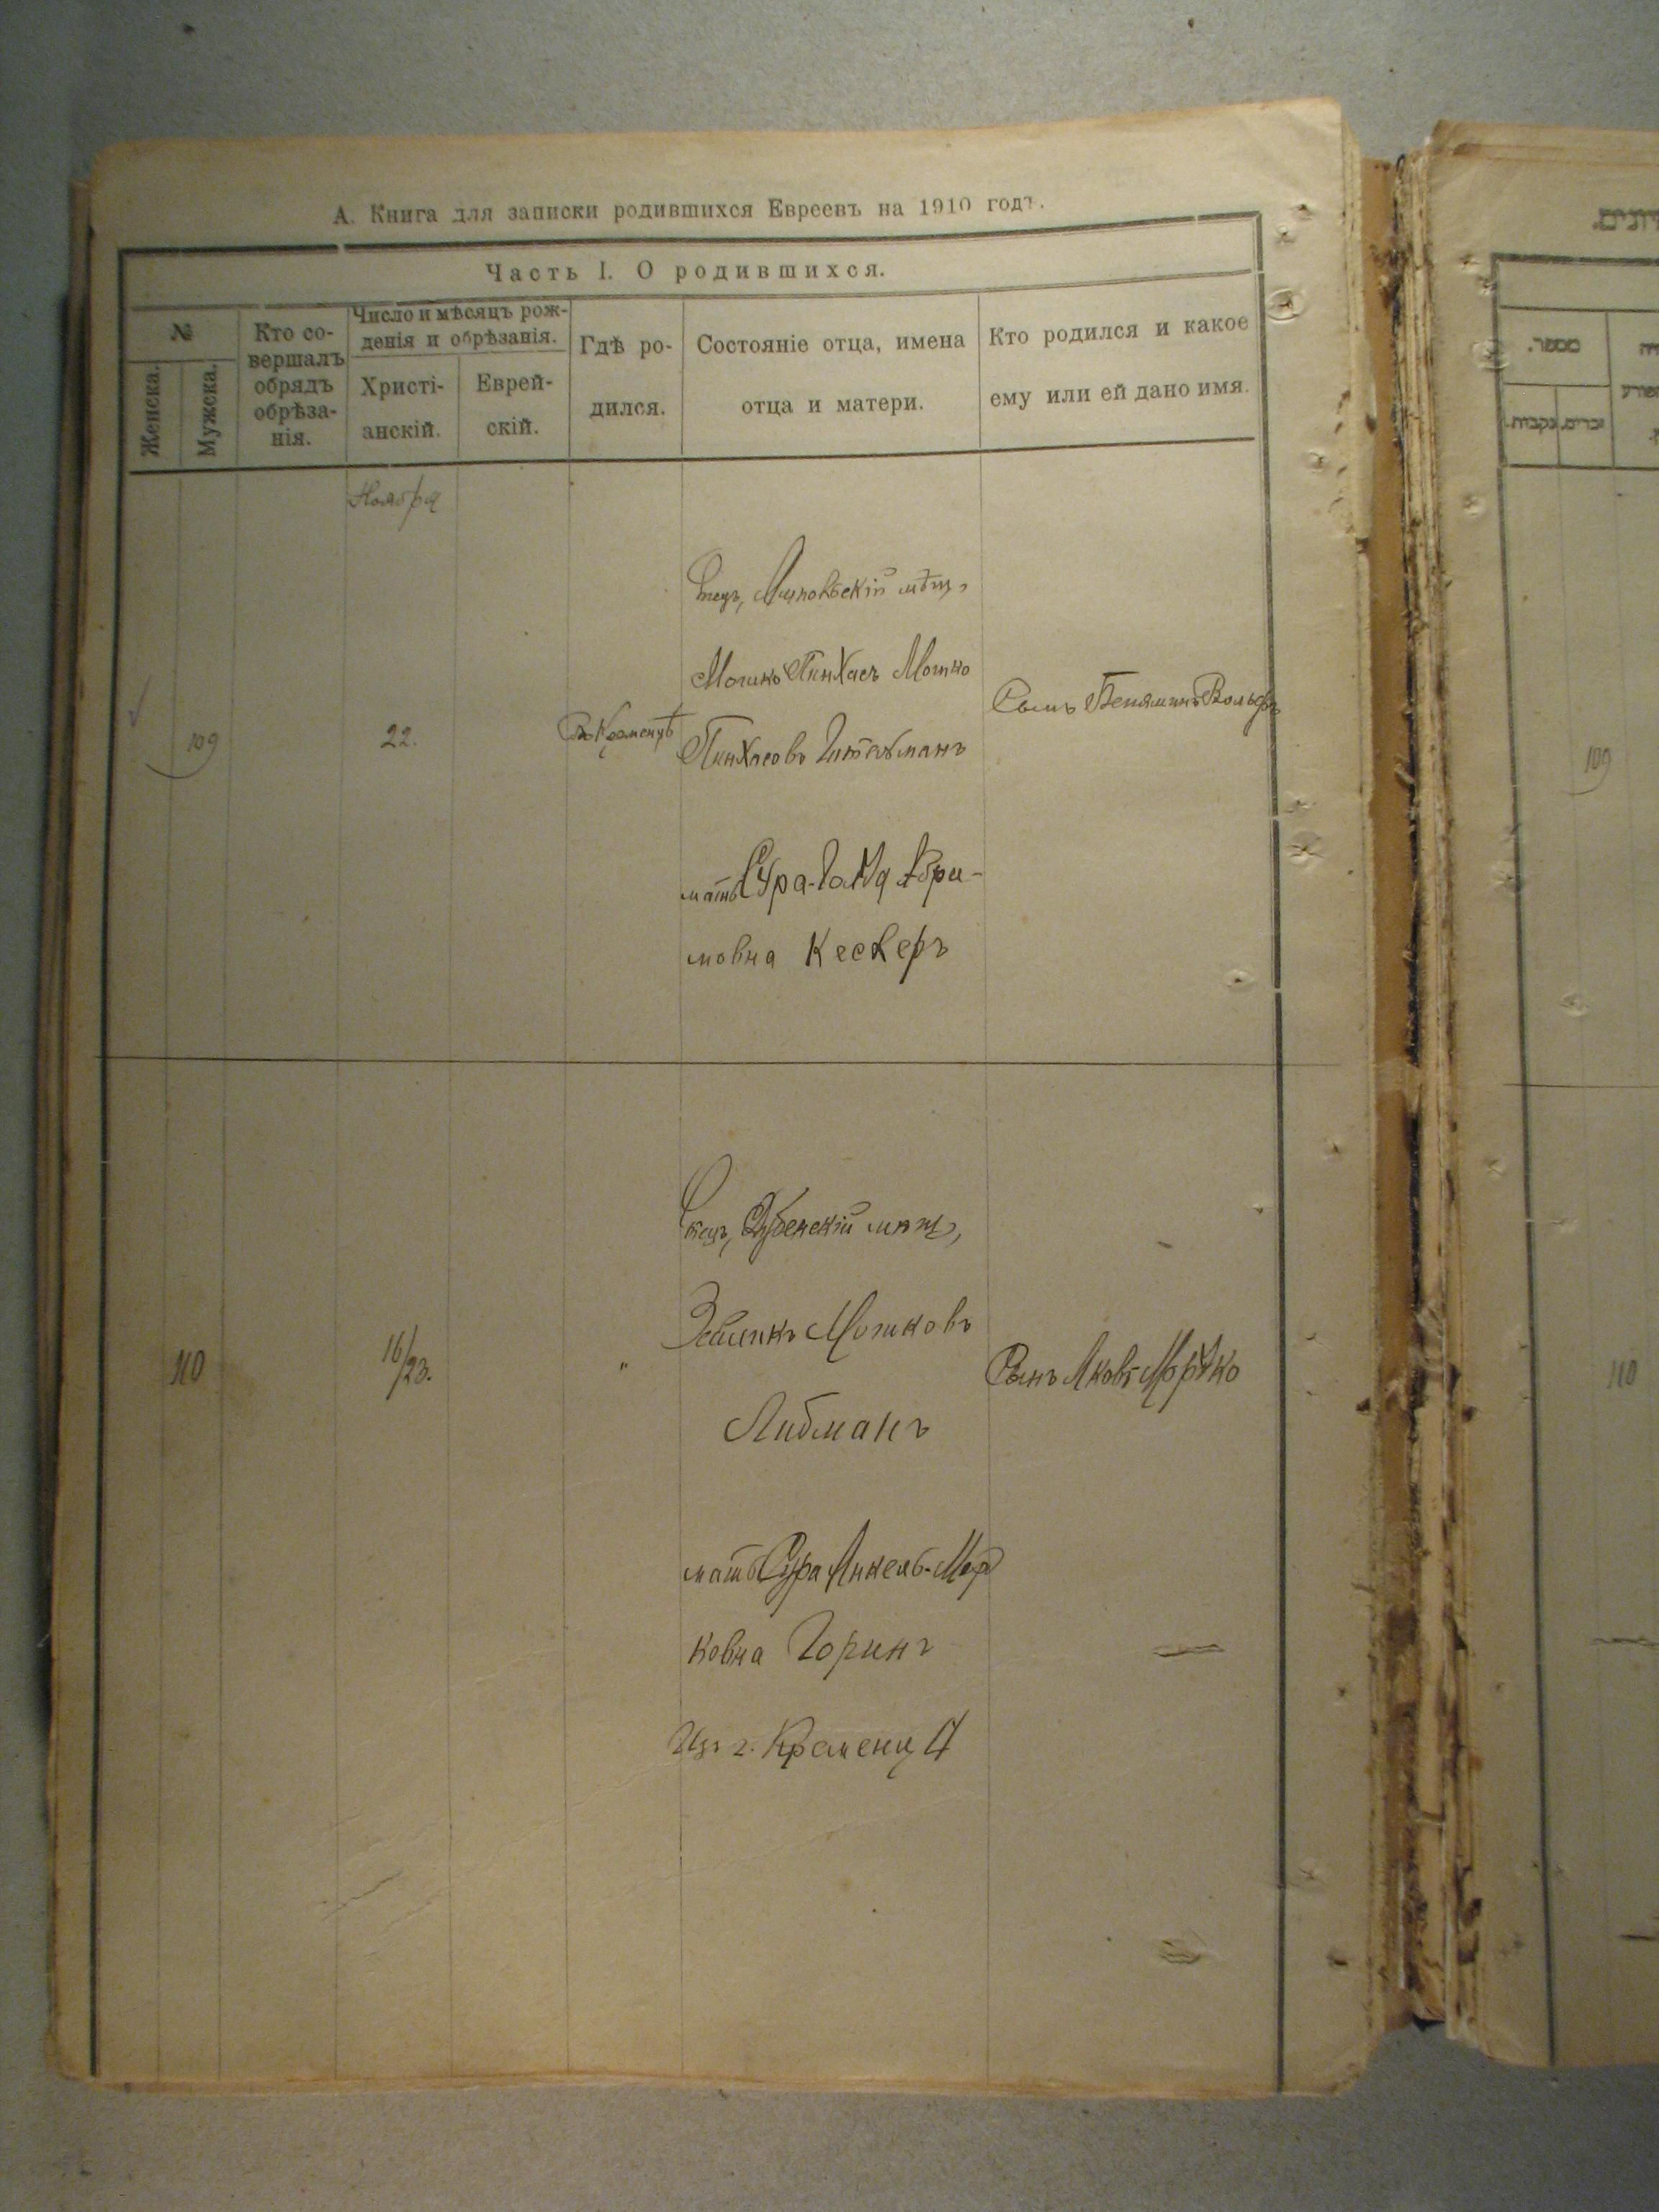 А. Книга для записки родившихся Евреевъ на 1910 годъ.
Часть I. О родившихся.
№
Женска.
Мужска.
Кто со-
вершалъ
обрядъ
обрѣза-
нія.
Число и мѣсяцъ рож-
денія и обрѣзанія.
Христі-
анскій.
Еврей-
скій.
Гдѣ ро-
дился.
Состояніе отца, имена
отца и матери.
Кто родился и какое
ему или ей дано имя.
Ноября
109
22.
Въ Кременцѣ
Отецъ, мѣщ,
Мошко Пинхасъ Мошко
Пинхасовъ
мать Сура- Абра-
мовна Кеслеръ
Сынъ Бенямин Вольфъ
110
16/23.
"
Отецъ, Дубенскій мѣщ,
Зейликъ Мошковъ
Либманъ
мать Сура Янкель-Мор
ковна Горинг
Изъ г. Кременца
Сынъ Яковъ Мордко
מספר.
זכרים.
נקבות.
109
110